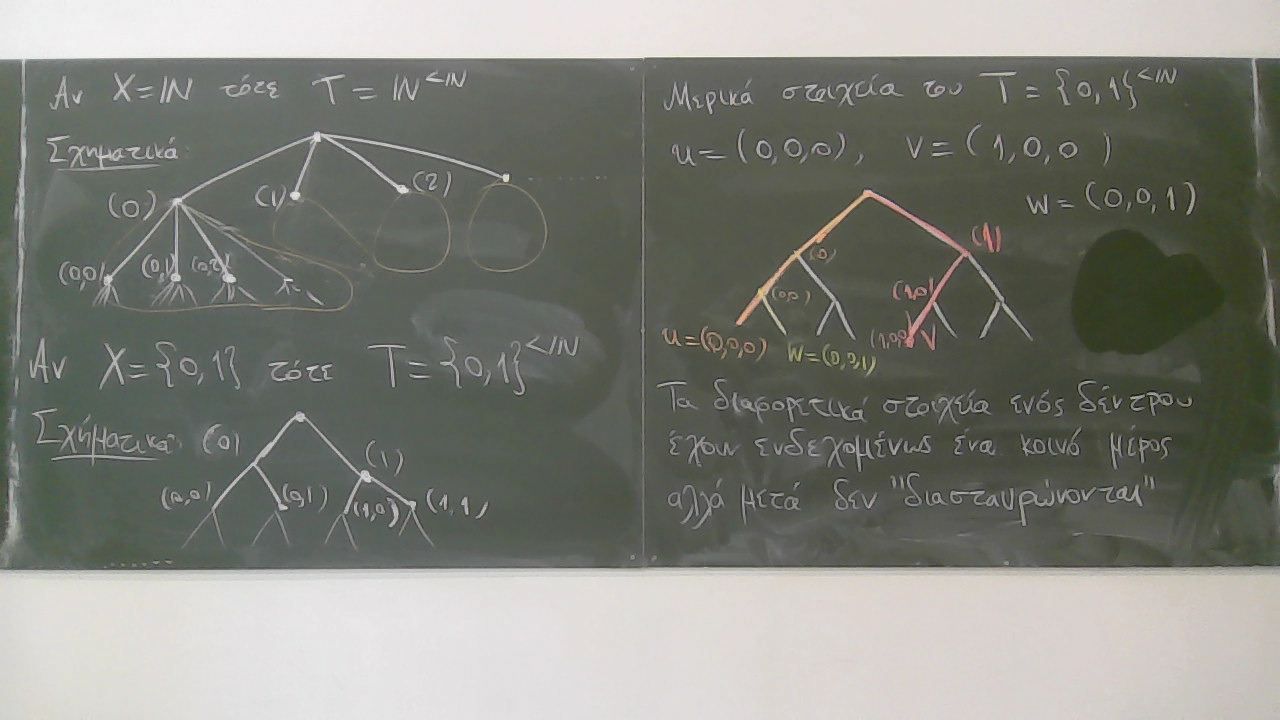 Αν X=ℕ τότε T = ℕ^{<ℕ}
Σχηματικά:
(0) (1) (2) ........
(0,0) (0,1) (0,2)
Αν X={0,1} τότε T={0,1}^{<ℕ}
Σχήματικά: (0) (1)
(0,0) (0,1) (1,0) (1,1)
.......
Μερικά στοιχεία του T={0,1}^{<ℕ}
u=(0,0,0), v=(1,0,0)
w=(0,0,1)
(0) (1)
(0,0) (1,0)
u=(0,0,0) w=(0,0,1) (1,0,0) v
Τα διαφορετικά στοιχεία ενός δέντρου
έχουν ενδεχομένως ένα κοινό μέρος
αλλά μετά δεν "διασταυρώνονται"